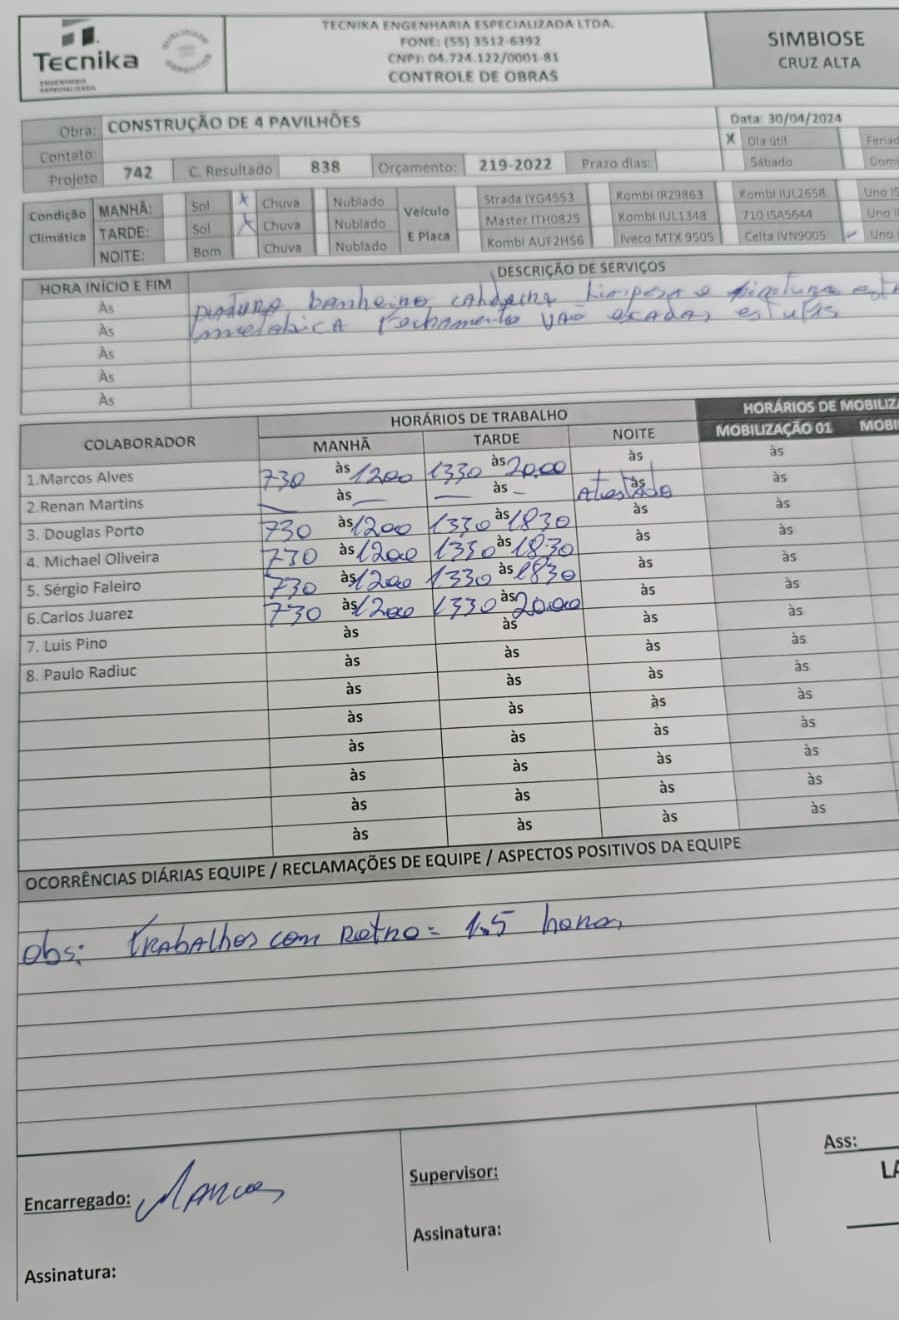 Tecnika
ENGENHARIA
ESPECIALIZADA
TECNIKA ENGENHARIA ESPECIALIZADA LTDA.
FONE: (55) 3512-6392
CNPJ: 04.724.122/0001-81
CONTROLE DE OBRAS
SIMBIOSE
CRUZ ALTA
Obra: CONSTRUÇÃO DE 4 PAVILHÕES
Data: 30/04/2024
Contato:
X Dia útil
Projeto 742 C. Resultado 838 Orçamento: 219-2022 Prazo dias: Sábado
Condição Climática
MANHÃ: Sol X Chuva Nublado
TARDE: Sol X Chuva Nublado
NOITE: Bom Chuva Nublado
Veículo E Placa
Strada IYG4553 Kombi IRZ9863 Kombi IUL2658
Master ITH0825 Kombi IUL1348 710 ISA5644
Kombi AUF2H56 Iveco MTX 9505 Celta IVN9005 Uno
HORA INÍCIO E FIM DESCRIÇÃO DE SERVIÇOS
Às banheiro limpesa e pintura
Às fechamento vão escadas
Às
Às
Às
COLABORADOR HORÁRIOS DE TRABALHO
MANHÃ TARDE NOITE MOBILIZAÇÃO 01
1.Marcos Alves 730 às 1200 1330 às 20.00 às às
2.Renan Martins — às — — às - Atestado às às
3. Douglas Porto 730 às 1200 1330 às 1830 às às
4. Michael Oliveira 730 às 1200 1330 às 1830 às às
5. Sérgio Faleiro 730 às 1200 1330 às 1830 às às
6.Carlos Juarez 730 às 1200 1330 às 20.00 às às
7. Luis Pino às às às às
8. Paulo Radiuc às às às às
às às às às
às às às às
às às às às
às às às às
às às às às
às às às às
OCORRÊNCIAS DIÁRIAS EQUIPE / RECLAMAÇÕES DE EQUIPE / ASPECTOS POSITIVOS DA EQUIPE
Obs: Trabalhos com Retro = 1.5 horas
Encarregado: Marcos
Supervisor:
Ass:
Assinatura:
Assinatura: